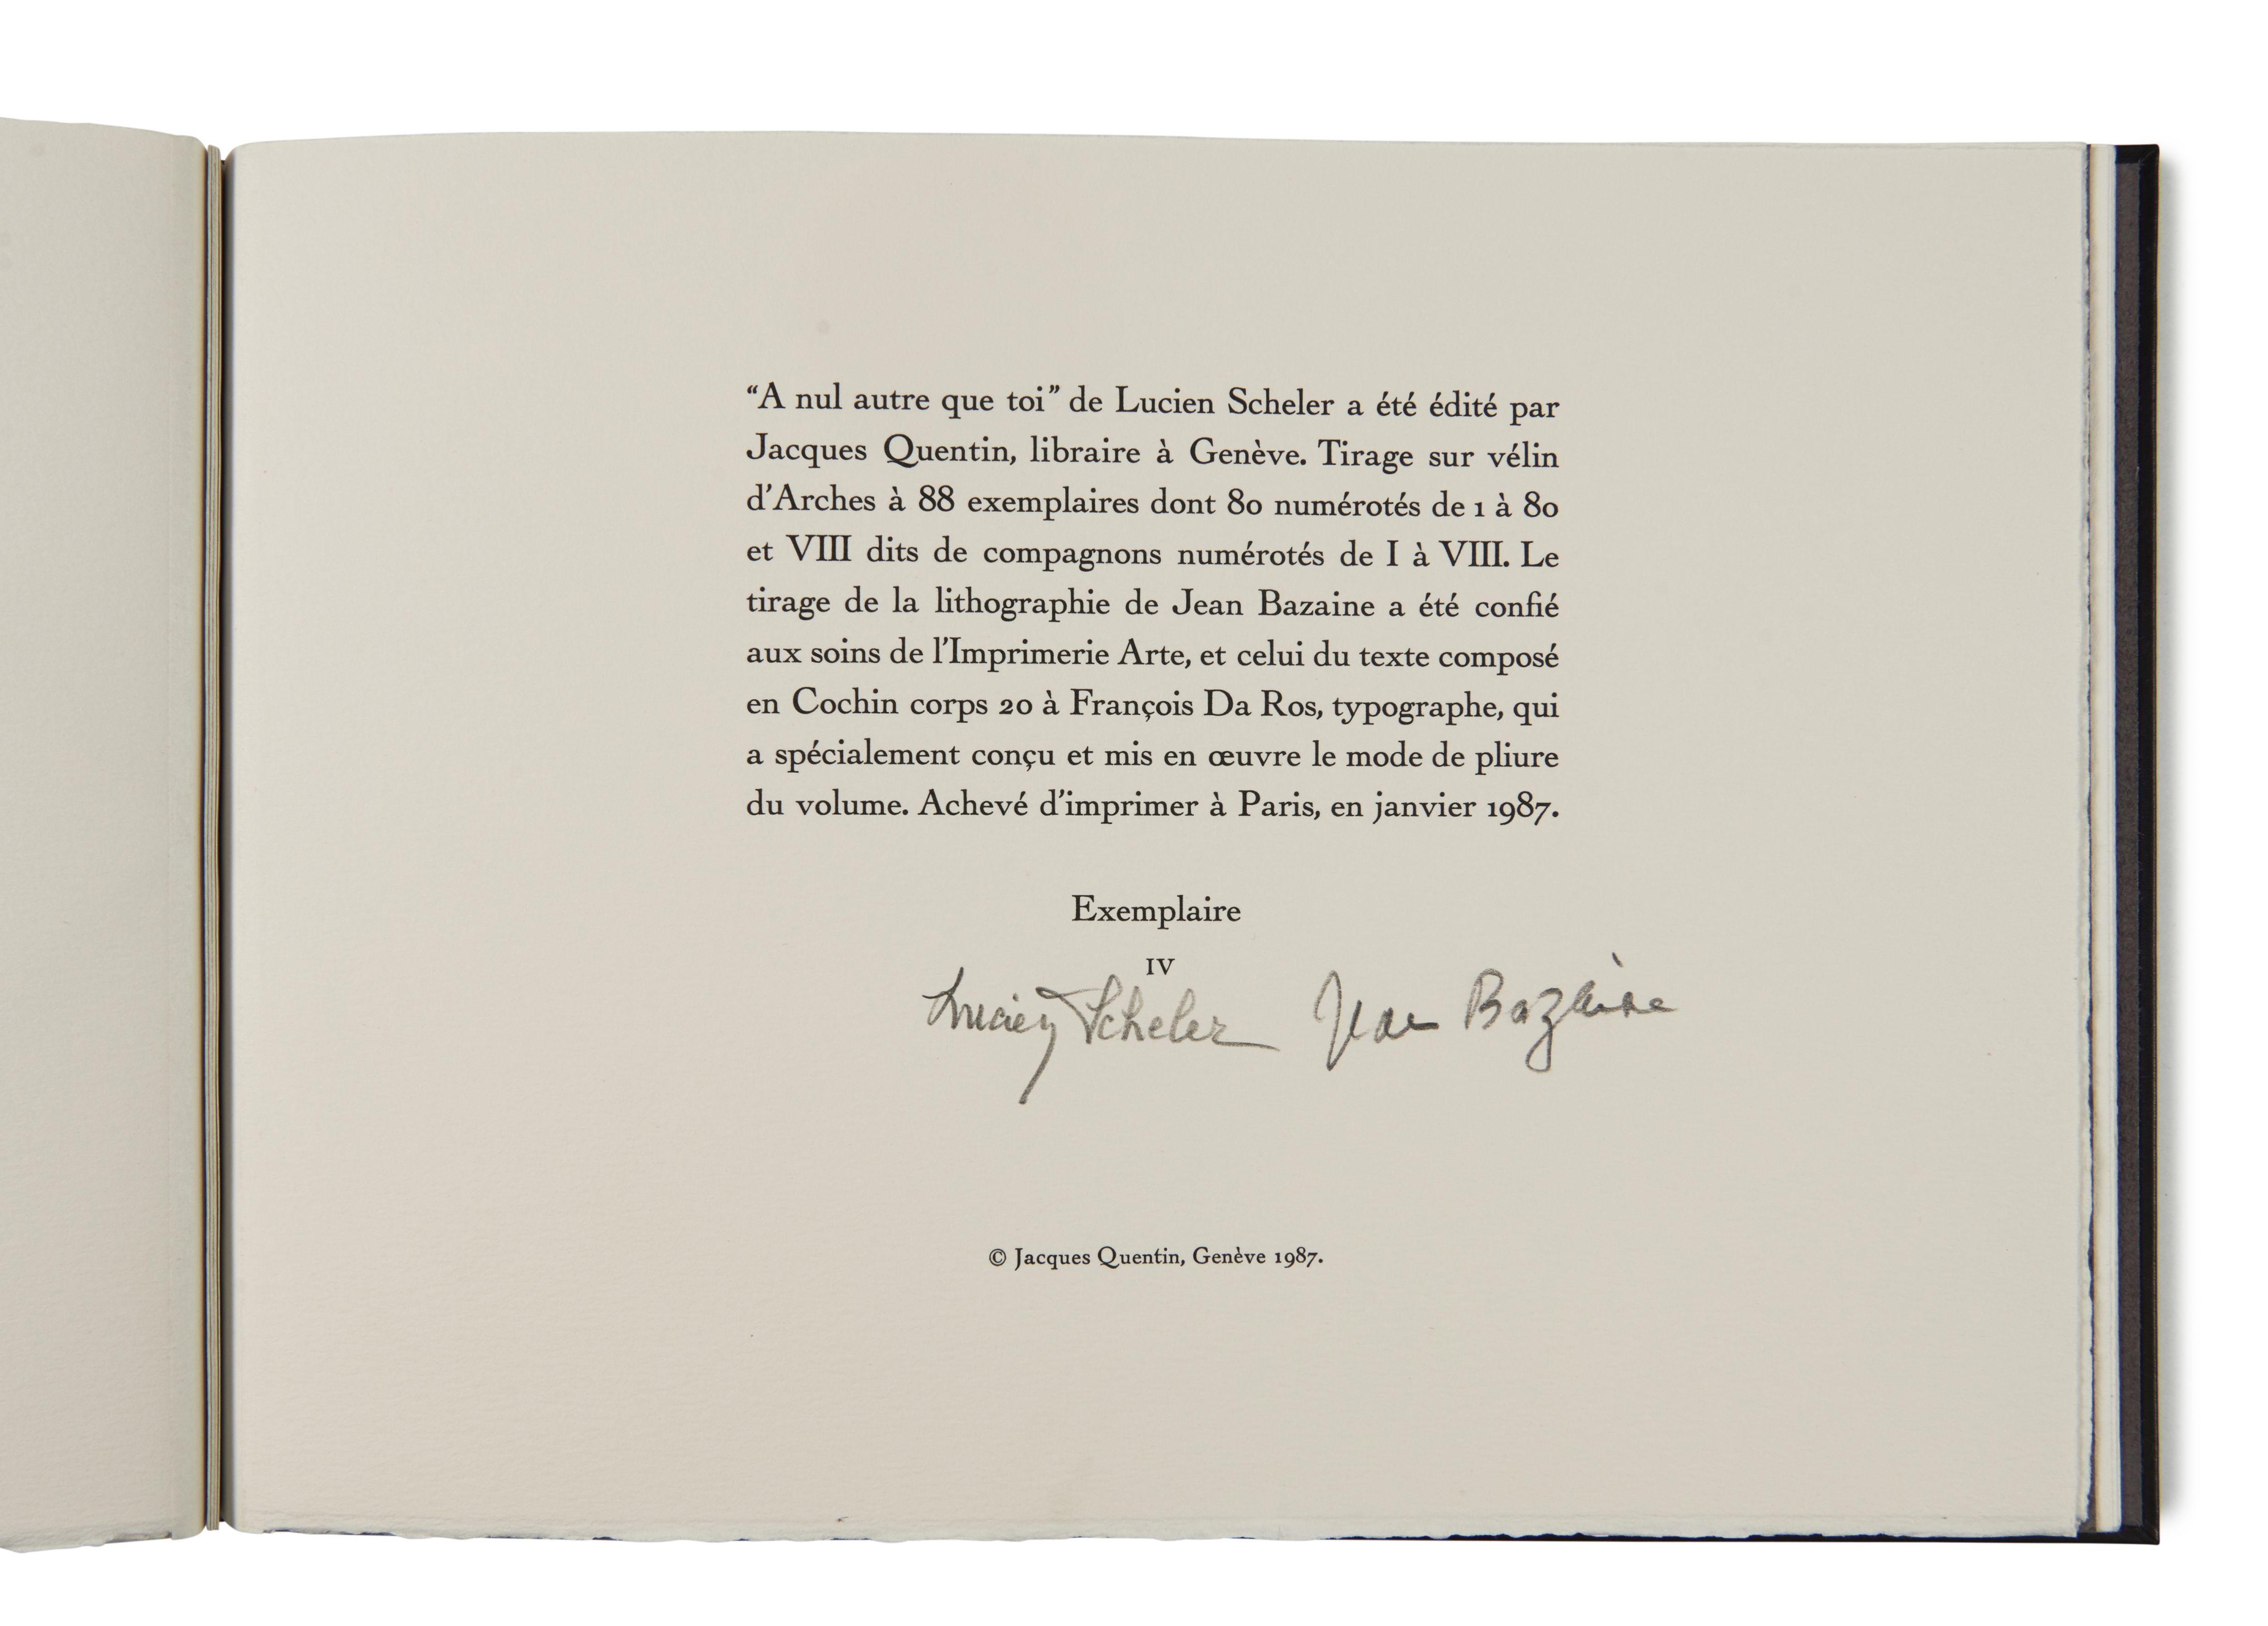 “A nul autre que toi” de Lucien Scheler a été édité par
Jacques Quentin, libraire à Genève. Tirage sur vélin
d’Arches à 88 exemplaires dont 80 numérotés de 1 à 80
et VIII dits de compagnons numérotés de I à VIII. Le
tirage de la lithographie de Jean Bazaine a été confié
aux soins de l’Imprimerie Arte, et celui du texte composé
en Cochin corps 20 à François Da Ros, typographe, qui
a spécialement conçu et mis en œuvre le mode de pliure
du volume. Achevé d’imprimer à Paris, en janvier 1987.
Exemplaire
IV
Lucien Scheler Jean Bazaine
© Jacques Quentin, Genève 1987.